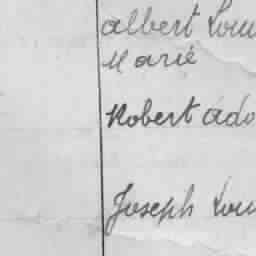 albert Lou
Marié
Robert ado
Joseph Lou